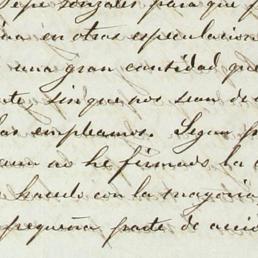 Pepe Gonzales para que
en otras especulacion
una gran cantidad que
sin que nos sean de
las empleamos. Segun
aun no he firmado la
hacerlo con la mayoria
pequeña parte de accio